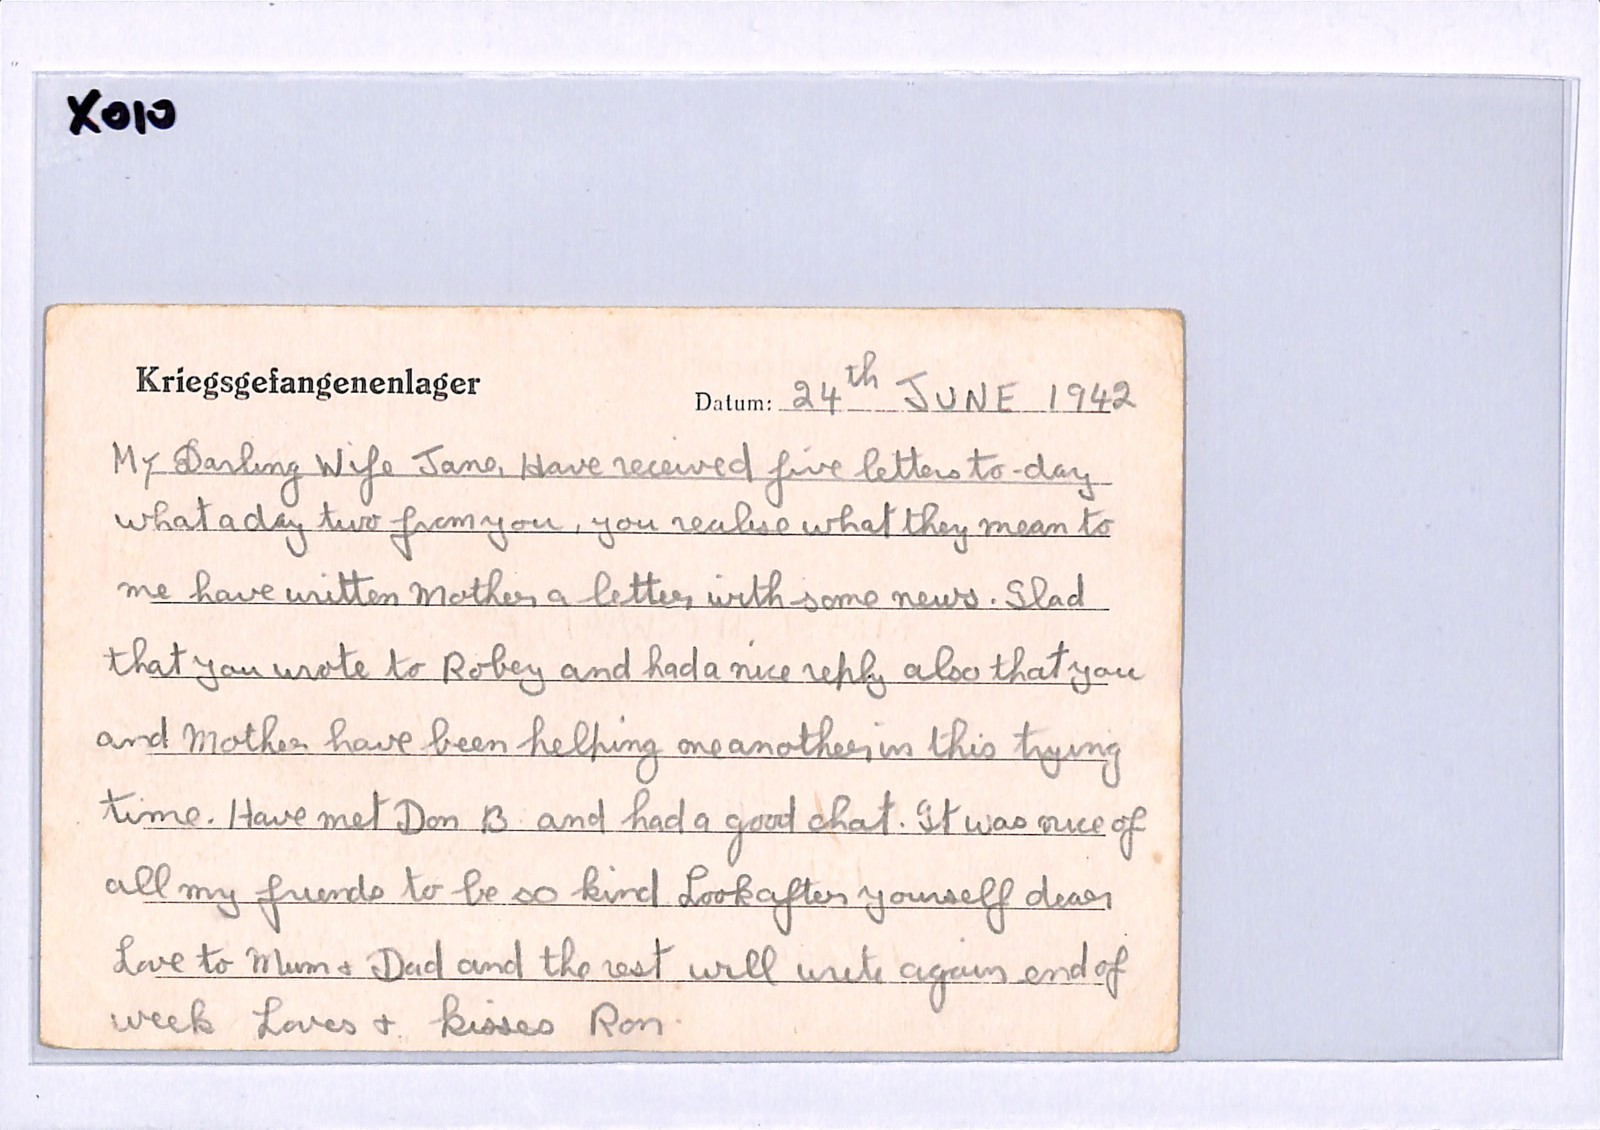 X010
Kriegsgefangenenlager
Datum: 24th JUNE 1942
My Darling Wife Jane, Have received five letters to-day
what a day two from you, you realise what they mean to
me have written Mother a letter with some news. Glad
that you wrote to Robey and had a nice reply also that you
and Mother have been helping one another in this trying
time. Have met Don B. and had a good chat. It was nice of
all my friends to be so kind Look after yourself dear
Love to Mum & Dad and the rest will write again end of
week Loves & kisses Ron.